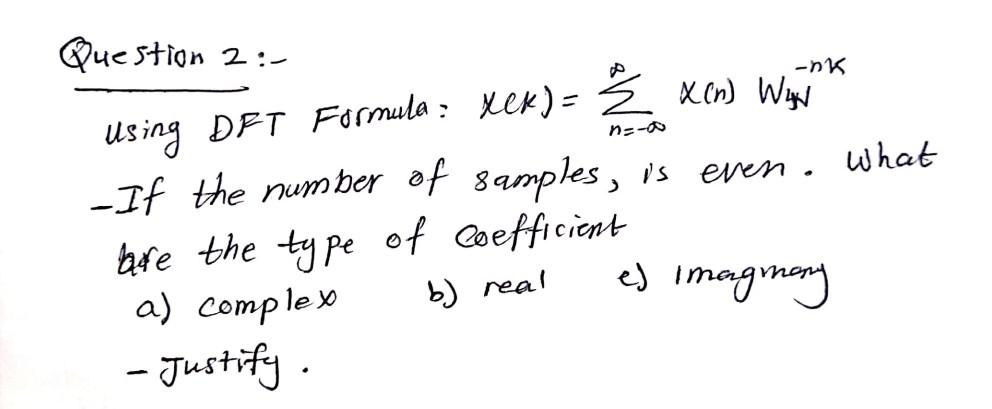 Question 2 :-
Using DFT Formula: X(k) = ∞ Σ n=-∞ x(n) W_N^-nk
-If the number of samples, is even. What
are the type of coefficient
a) complex b) real c) Imaginary
- Justify.